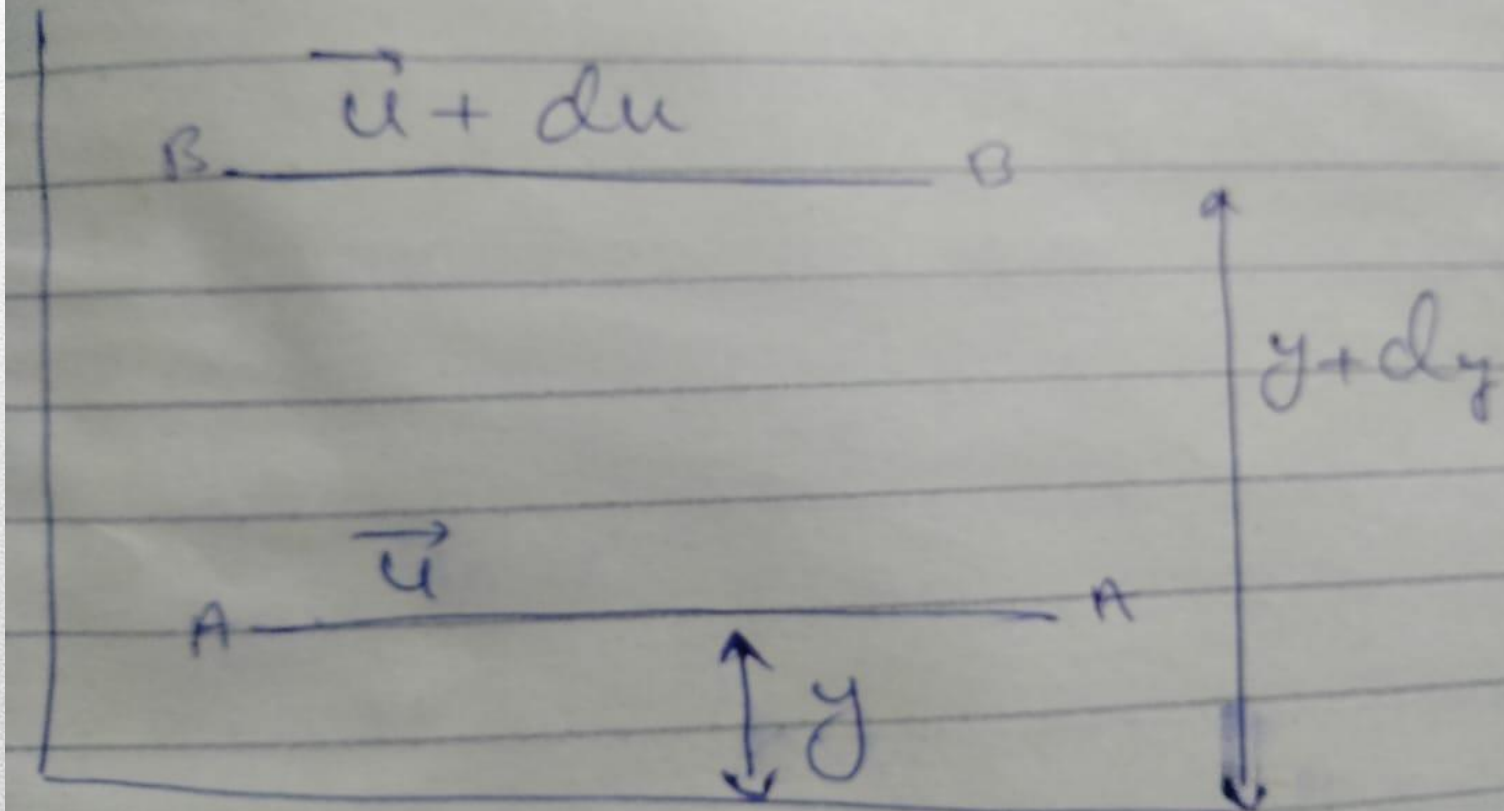 u⃗ + du
B B
y+dy
u⃗
A A
y